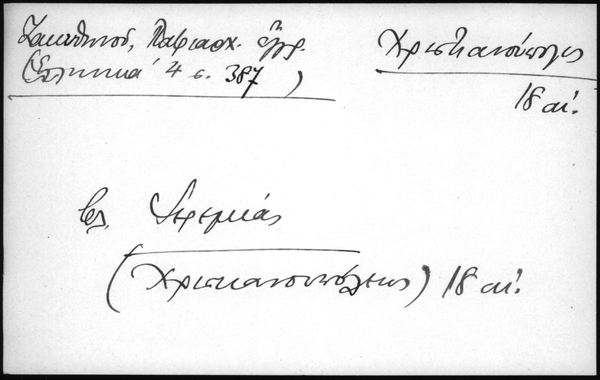 Ζακυθηνοῦ, Πατριαρχ. ἔγγρ.
(Ἑλληνικά 4 σ. 387)
Χριστιανούπολις
18 αἰ.
βλ. Ἱερεμίας
(Χριστιανουπόλεως) 18 αἰ.